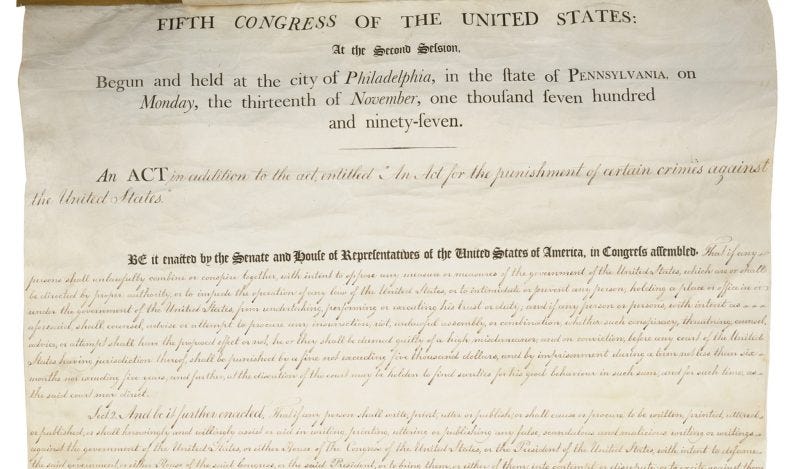 FIFTH CONGRESS OF THE UNITED STATES:
At the Second Session,
Begun and held at the city of Philadelphia, in the ſtate of PENNSYLVANIA, on
Monday, the thirteenth of November, one thouſand ſeven hundred
and ninety-ſeven.
An ACT in addition to the act, entitled "An Act for the punishment of certain crimes against
the United States."
BE it enacted by the Senate and House of Representatives of the United States of America, in Congress assembled, That if any
persons shall unlawfully combine or conspire together, with intent to oppose any measure or measures of the government of the United States, which are or shall
be directed by proper authority, or to impede the operation of any law of the United States, or to intimidate or prevent any person, holding a place or office in or
under the government of the United States, from undertaking, performing or executing his trust or duty; and if any person or persons, with intent as
aforesaid, shall counsel, advise or attempt to procure any insurrection, riot, unlawful assembly, or combination, whether such conspiracy, threatning, counsel,
advice, or attempt shall have the proposed effect or not, he or they shall be deemed guilty of a high misdemeanor, and on conviction, before any court of the United
States having jurisdiction thereof, shall be punished by a fine not exceeding five thousand dollars, and by imprisonment during a term not less than six
months nor exceeding five years, and further, at the discretion of the court may be holden to find sureties for his good behaviour in such sum, and for such time, as
the said court may direct.
Sect. 2. And be it further enacted, That if any person shall write, print, utter or publish, or shall cause or procure to be written, printed, uttered
or published, or shall knowingly and willingly assist or aid in writing, printing, uttering or publishing any false, scandalous and malicious writing or writings
against the government of the United States, or either House of the Congress of the United States, or the President of the United States, with intent to defame
the said government, or either House of the said Congress, or the said President, or to bring them, or either of them, into contempt or disrepute